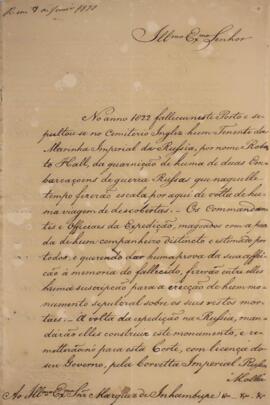 Ill.mo Ex.mo Senhor
No anno 1822 falleceu neste Porto e se-
pultou-se no Cemiterio Inglez hum Tenente da
Marinha Imperial da Russia, por nome Rober-
to Hall, da guarnição de huma de duas Em-
barcaçoens de guerra Russas que naquelle
tempo fizerão escala por aqui de volta de hu-
ma viagem de descobertas. – Os Commandan-
tes e Officiaes da Expedição, magoados com a per-
da de hum companheiro distincto e estimado por
todos, e querendo dar huma prova da sua affei-
ção à memoria do fallecido, fizerão entre elles
huma suscripção para a erecção de hum mo-
numento sepulcral sobre os seus restos mor-
taes. – A volta da expedição na Russia, man-
darão elles construir este monumento, e re-
metterão-no para esta Corte, com licença do
seu Governo, pela Corvetta Imperial Russa
Ao Ill.mo Ex.mo Snr Marquez de Inhambupe